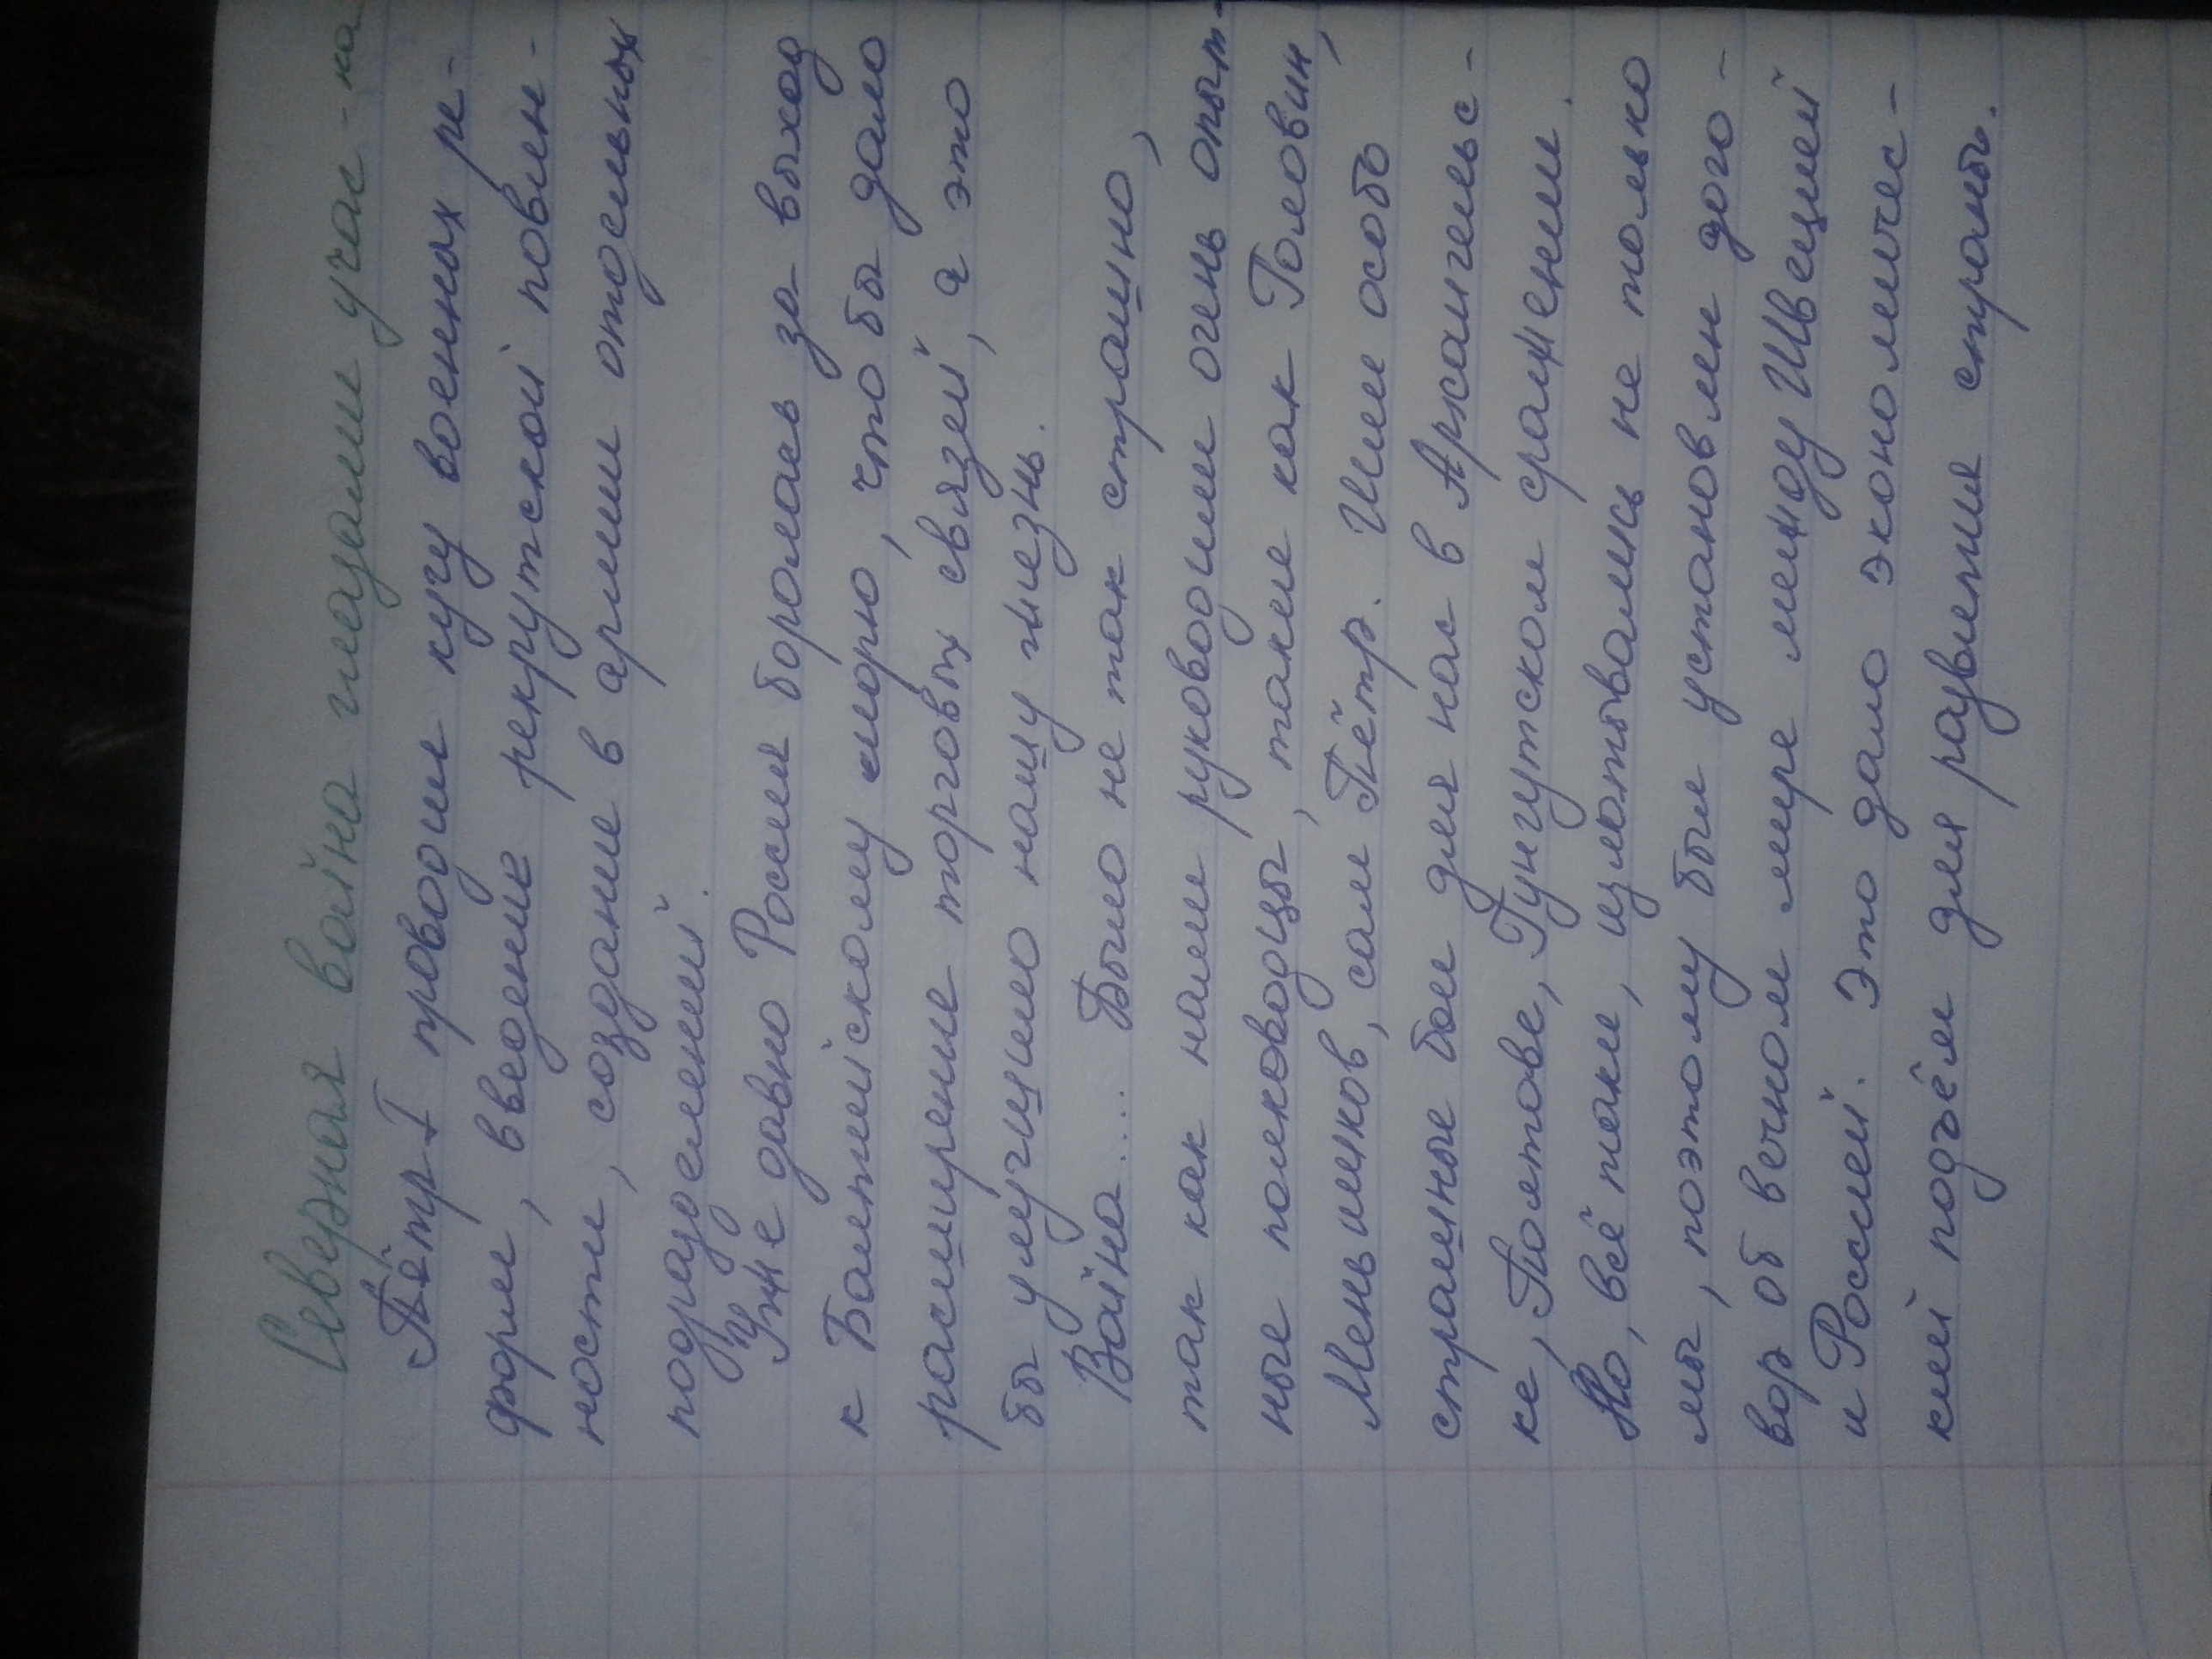 Северная война глазами учас-ка
Пётр I проводил кучу военных ре-
форм, введение рекрутской повин-
ности, создание в армии отдельных
подразделений.
Уже давно Россия боролась за выход
к Балтийскому морю, что бы дало
расширение торговых связей, а это
бы улучшило нашу жизнь.
Война... Было не так страшно,
так как нами руководили очень опыт-
ные полководцы, такие как Головин,
Меньшиков, сам Пётр. Шли особо
страшные бои для нас в Архангельс-
ке, Полтаве, Гунгутском сражении.
Но, всё таки, изматывались не только
мы, поэтому был установлен дого-
вор об вечном мире между Швецией
и Россией. Это дало экономичес-
кий подъём для развития страны.